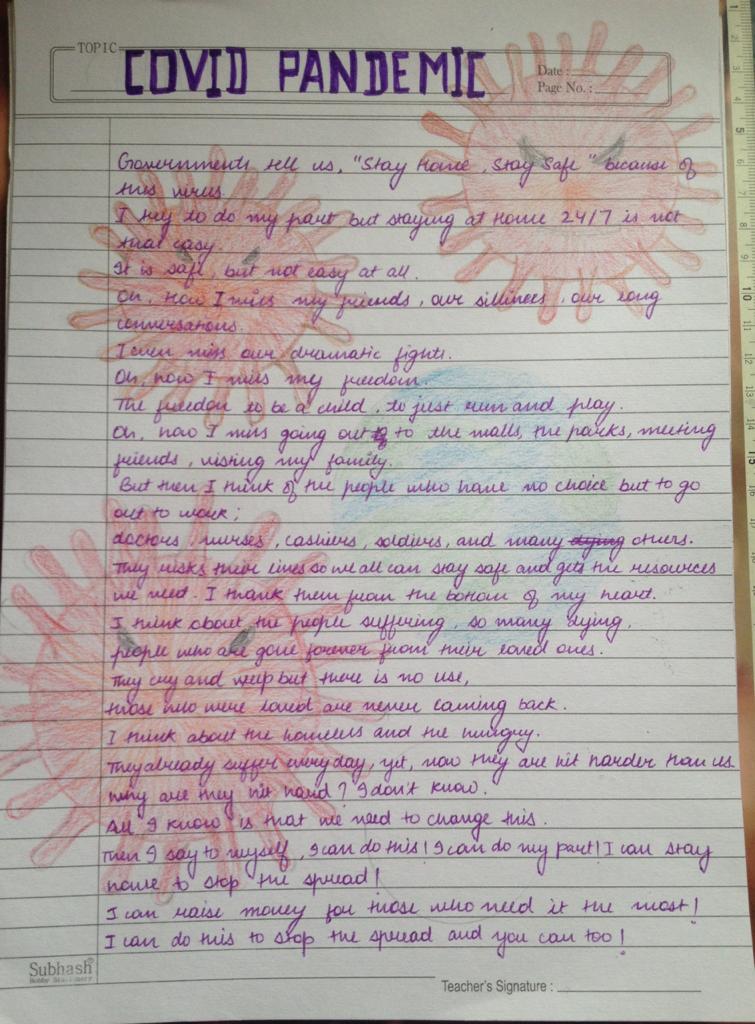 TOPIC
COVID PANDEMIC
Date :
Page No. :
Governments tell us, "Stay Home, Stay Safe" because of
this virus.
I try to do my part but staying at home 24/7 is not
that easy.
It is safe, but not easy at all.
Oh, How I miss my friends, our silliness, our long
conversations.
I even miss our dramatic fights.
Oh, how I miss my freedom.
The freedom to be a child, to just run and play.
Oh, how I miss going out to the malls, the parks, meeting
friends, visiting my family.
But then I think of the people who have no choice but to go
out to work;
doctors, nurses, cashiers, soldiers, and many dying others.
They risks their lives so we all can stay safe and get the resources
we need. I thank them from the bottom of my heart.
I think about the people suffering, so many dying,
people who are gone forever from their loved ones.
They cry and weep but there is no use,
those who were loved are never coming back.
I think about the homeless and the hungry.
They already suffer everyday, yet, now they are hit harder than us
why are they hit hard? I don't know.
All I know is that we need to change this.
Then I say to myself, I can do this! I can do my part! I can stay
home to stop the spread!
I can raise money for those who need it the most!
I can do this to stop the spread and you can too!
Subhash
Hobby Stationery
Teacher's Signature :
1
2
3
4
5
6
7
8
9
10
11
12
13
14
15
16
17
18